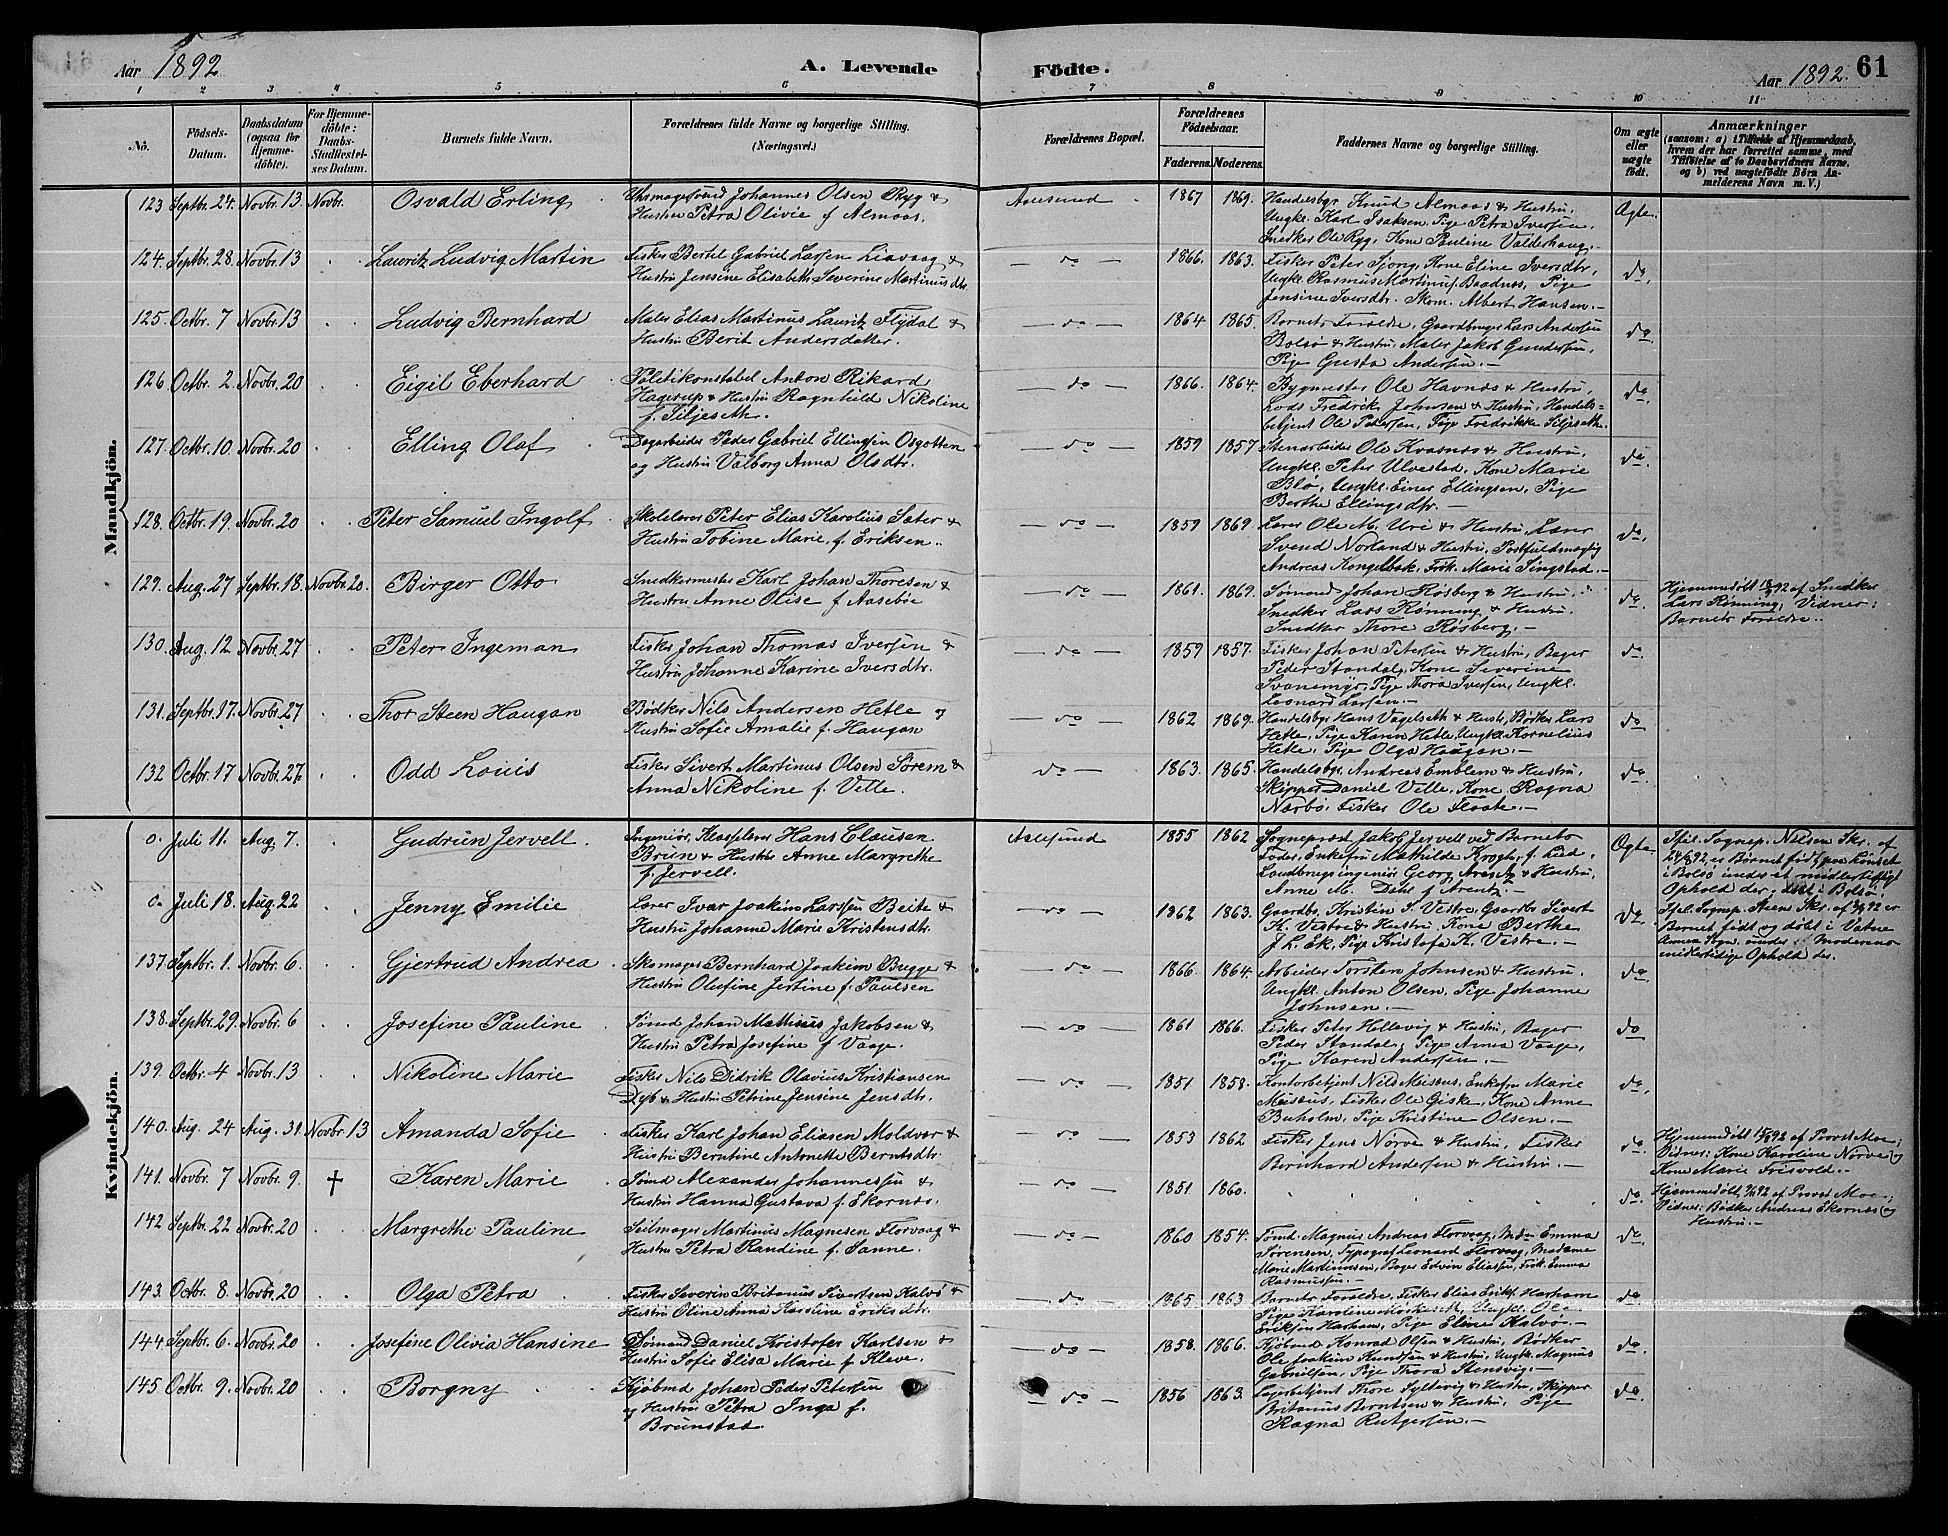 Aar 1892 A. Levende Födte. Aar 1892. 61
1 2 3 4 5 6 7 8 9 10 11
No. Födsels-Datum. Daabsdatum (ogsaa for Hjemmedöbte). For Hjemmedöbte: Daabs-Stadfæstelses Datum. Barnets fulde Navn. Forældrenes fulde Navne og borgerlige Stilling. (Næringsvei.) Forældrenes Bopæl. Forældrenes Födselsaar. Faderens. Moderens. Faddernes Navne og borgerlige Stilling. Om ægte eller uægte födt. Anmærkninger (saasom: a) i Tilfælde af Hjemmedaab, hvem der har forrettet samme, med Tilföielse af to Daabsvidners Navne, og b) ved uægtefödte Börn Anmelderens Navn m. V.)
Mandkjön.
123 Septbr. 24. Novbr. 13 Novbr. Osvald Erling Uhrmagersvend Johannes Olsen Ryg & Aalesund 1867 1869. Handelsbgr. Knud Almaas & Hustru, Ægte.
Hustru Petra Olivie f. Almaas. Ungkl. Karl Isaksen, Pige Petra Iversen,
Snedker Ole Ryg, Kone Pauline Valderhaug.
124. Septbr. 28. Novbr. 13 Lauritz Ludvig Martin Fisker Bertel Gabriel Larsen Liavaag & do 1866. 1863. Fisker Peter Sjong, Kone Eline Iversdtr, do.
Hustru Jensine Elisabeth Severine Martinusdtr. Ungkl. Rasmus Martinus Baadnes, Pige
Jensine Iversdtr. Skom. Albert Hansen.
125. Octbr. 7 Novbr. 13 Ludvig Bernhard Maler Elias Martinus Lauritz Flydal & do 1864 1865. Barnets Forældre, Gaardbruger Lars Andersen do
Hustru Berit Andersdatter. Bolsø & Hustru, Maler Jakob Gundersen,
Pige Gusta Andersen.
126. Octbr. 2. Novbr. 20 Eigil Eberhard Politikonstabel Anton Rikard do 1866. 1864. Bygmester Ole Havnås & Hustru, do
Hagerup & Hustru Ragnhild Nikoline Lods Fredrik Johnsen & Hustru, Handels-
f. Siljeseth. betjent Ole Petersen, Pige Fredrikke Siljeseth.
127. Octbr. 10. Novbr. 20 Elling Olaf Dagarbeider Peder Gabriel Ellingsen Osgotten do 1859 1857 Stenarbeider Ole Kvasnes & Hustru, do.
og Hustru Valborg Anna Olsdtr. Ungkl. Peter Ulvestad, Kone Marie
Blø, Ungkl. Einer Ellingsen, Pige
Berthe Ellingsdtr.
128. Octbr. 19. Novbr. 20 Peter Samuel Ingolf Skolelærer Peter Elias Karolius Sæter & do 1859 1869 Lærer Ole M. Uri & Hustru, Lærer do.
Hustru Tobine Marie f. Eriksen. Svend Norland & Hustru, Postfuldmægtig
Andreas Kongelbak, Frk. Marie Singstad.
129. Aug. 27 Septbr. 18. Novbr. 20. Birger Otto Snedkermester Karl Johan Thoresen & do 1861. 1869. Sømand Johan Røsberg & Hustru, do. Hjemmedøbt 18/9 92 af Snedker
Hustru Anne Olise f. Aasebøe Snedker Lars Rønning & Hustru, Lars Rønning, Vidner:
Snedker Thore Røsberg. Barnets Forældre.
130. Aug. 12 Novbr. 27 Peter Ingeman Fisker Johan Thomas Iversen & do 1859 1857. Fisker Johan Petersen & Hustru, Bager do.
Hustru Johanne Karine Iversdtr. Peder Standal, Kone Severine
Svanemyr, Pige Thora Iversen, Ungkl.
Leonard Larsen.
131. Septbr. 17. Novbr. 27 Thor Steen Haugan Bødker Nils Andersen Hetle og do 1862 1869. Handelsbgr. Hans Vagelseth & Hustr, Bødker Lars do
Hustru Sofie Amalie f. Haugan Hetle, Pige Karen Hetle, Ungkl. Kornelius
Hetle, Pige Olga Haugan.
132 Octbr. 17 Novbr. 27. Odd Louis Fisker Sivert Martinus Olsen Sørem & do 1863. 1865. Handelsbgr. Andreas Emblem & Hustru, do.
Anna Nikoline f. Velle. Skipper Daniel Velle, Kone Ragna
Nærbø, Fisker Ole Flaate.
Kvindekjön.
0. Juli 11. Aug. 7. Gudrun Jervell Ingeniør, Klasselærer Hans Clausen Aalesund 1855 1862 Sogneprest Jakob Jervell ved Barnets Ægte Iføl. Sognep. Nilsen Skr. af
Brun & Hustru Anne Margrethe Fader, Enkefru Mathilde Krogh, f. Lied, 24/8 92 er Barnet født paa Lønset
f. Jervell. Landbrugsingeniør Georg Arentz & Hustru, i Bolsø under et midlertidigt
Anne M. Dahl f. Arentz. Ophold der, døbt i Bolsø.
0. Juli 18. Aug. 22 Jenny Emilie Lærer Ivar Joakim Larssen Beite & do 1862 1863. Gaardbr. Kristen S. Vestre, Gaardbr. Sivert do. Iføl. Sognep. Steen Skr. af 92 er
Hustru Johanne Marie Kristensdtr. K. Vestre & Hustru, Kone Berthe Barnet født og døbt i Vatne
J. L. Ek, Pige Kristofa K. Vestre. Annex Sogn under Moderens
midlertidige Ophold der.
137 Septbr. 1. Novbr. 6. Gjertrud Andrea Skomager Bernhard Joakim Bugge & do 1866. 1864. Arbeider Torsten Johnsen & Hustru, do
Hustru Olufine Jertine f. Paulsen Ungkl. Anton Olsen, Pige Johanne
Johnsen.
138. Septbr. 29. Novbr. 6 Josefine Pauline Sømd Johan Mathius Jakobsen & do 1861 1866. Fisker Peter Hellevig & Hustru, Bager do
Hustru Petra Josefine f. Vaage. Peder Standal, Pige Anna Vaage,
Pige Karen Andersen.
139. Octbr. 4 Novbr. 13 Nikoline Marie Fisker Nils Didrik Olavius Kristiansen do 1851 1858. Kontorbetjent Nils Meisus, Enkefru Marie do.
Dyb & Hustru Petrine Jensine Jensdtr. Meisus, Fisker Ole Giske, Kone Anne
Buholm, Pige Kristine Olsen.
140. Aug. 24 Aug. 31. Novbr. 13 Amanda Sofie Fisker Karl Johan Eliasen Moldvær & do 1853 1862 Fisker Jens Nørve & Hustru, Fisker do. Hjemmedøbt 92 af Provst Moe,
Hustru Berntine Antonette Berntsdtr. Bernhard Andersen & Hustru. Vidner: Kone Karoline Nørve og
Kone Marie Frisvold.
141. Novbr. 7 Novbr. 9. † Karen Marie Sømd Alexander Johannessen & do 1851 1860. do. Hjemmedøbt 9/11 92 af Provst Moe,
Hustru Hanna Gustava f. Ekornes. Vidner: Bødker Andreas Ekornes og
Hustru.
142 Septbr. 22 Novbr. 20 Margrethe Pauline Seilmager Martinus Magnesen Florvaag & do 1860 1854. Sømd. Magnus Andreas Florvaag, Mdm Emma do.
Hustru Petra Randine f. Sanne. Sørensen, Typograf Leonard Florvaag, Madame
Marie Martinusen, Bager Edvin Eliassen, Frk. Emma
Rasmussen.
143. Octbr. 8. Novbr. 20 Olga Petra Fisker Severin Britanus Sivertsen Kalvø & do 1865 1863 Barnets Forældre, Fisker Elias Eriks Harham do
Hustru Oline Anna Karoline Eriksdtr. Pige Karoline Mørkeseth, Ungkl. Ole
Eriksen Harham, Pige Eline Kalvø.
144 Septbr. 6. Novbr. 20 Josefine Olivia Hansine Sømand Daniel Kristofer Karlsen & do 1858. 1866. Kjøbmd Konrad Olsen & Hustru, Bødker do.
Hustru Sofie Elisa Marie f. Kleve. Ole Joakim Knudsen & Hustru, Ungkl. Magnus
Gabrielsen, Pige Thora Stensvig.
145 Octbr. 9. Novbr. 20 Borgny Kjøbmd Johan Peder Petersen do 1856 1863. Lagerbetjent Thore Syltevig & Hustru, Skipper do
og Hustru Petra Inga f. Britanus Berntsen & Hustru, Pige
Brunstad. Ragna Rutgersen.